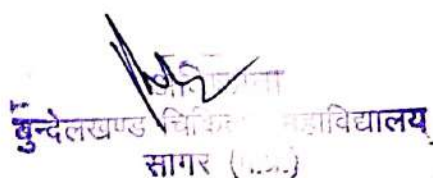 बुन्देलखण्ड चिकित्सा महाविद्यालय
सागर (म.प्र.)